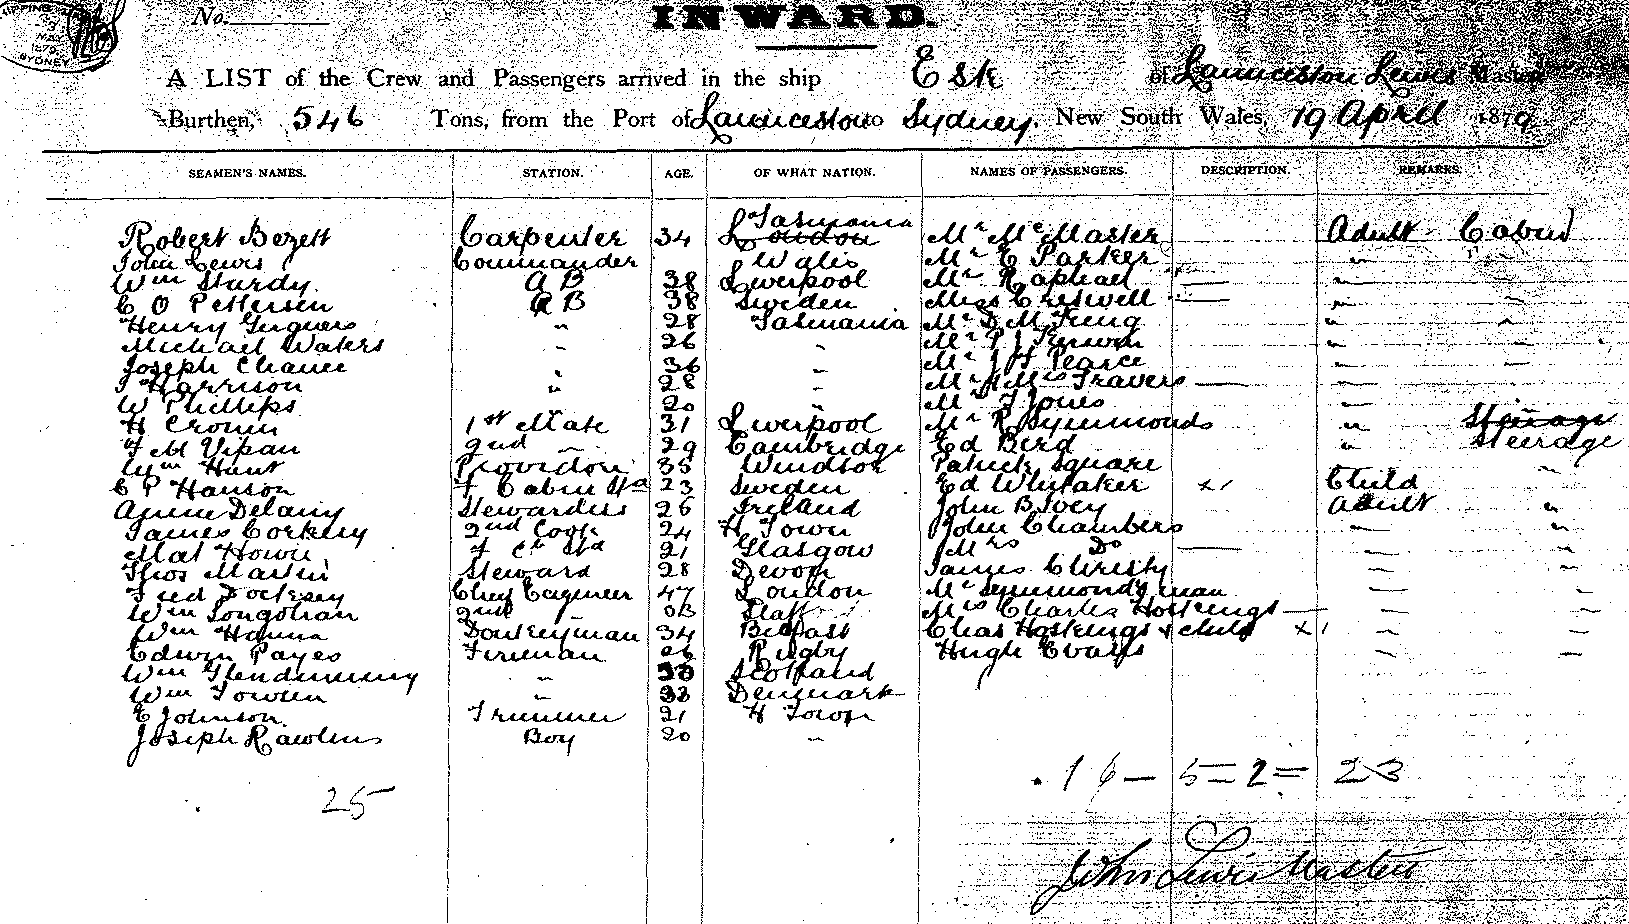 SHIPPING
SYDNEY
No.
INWARD.
A LIST of the Crew and Passengers arrived in the ship Esk of Launceston Lewis Master
Burthen, 546 Tons, from the Port of Launceston to Sydney. New South Wales, 19 April 1879
SEAMEN'S NAMES. STATION. AGE. OF WHAT NATION. NAMES OF PASSENGERS. DESCRIPTION. REMARKS.
Robert Bezett Carpenter 34 London Tasmania Mr McMaster Adult Cabin
John Lewis Commander Wales Mr E Parker " "
Wm Sturdy A B 38 Liverpool Mr Raphael — " "
C O Pettersen A B 38 Sweden Miss Creswell — " "
Henry " 28 Tasmania Mr D M " "
Michael Waters " 26 " Mr P J
Joseph " 36 " Mr J H Pearce " "
T Harrison " 28 " Mr & Mrs Travers —
W Phillips 20 " Mr T Jones "
H Cronin 1st Mate 31 Liverpool Mr R Symmonds " Steerage
T M Vipan 2nd " 29 Cambridge Ed Bird " Steerage
Wm Hunt Providore 35 Windsor Patrick Square "
C P Hanson F Cabin Std 23 Sweden Ed Whitaker x1 Child "
Annie Delany Stewardess 26 Ireland John B Joey Adult "
James Corkery 2nd Cook 24 H Town John Chambers " "
Mat Howe F Cn Std 21 Glasgow Mrs Do — " "
Thos Martin Steward 28 Devon James Christy " "
Fred Chief Engineer 47 London Mr Symmonds man " "
Wm 2nd " Mrs Charles Hoskings — " "
Wm Hanna Donkeyman 34 Belfast Chas Hoskings & child x1 " "
Edwin Payes Fireman 26 Rugby Hugh Evans " "
Wm Glendinning " Scotland
Wm " 33 Denmark
E Johnson Trimmer 21 H Town
Joseph Rawlins Boy 20 "
16 — 5 = 2 = 23
25
John Lewis Master